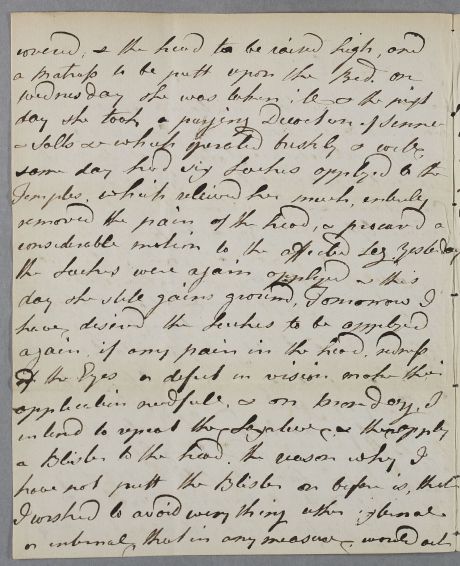 covered, & the head to be raised high, and
a Matrass to be putt upon the Bed. on
Wednesday she was taken ill & the next
day she took a purging Decoction of Senna
& Salts which operated briskly & well,
same day had six Leeches applyed to the
Temples, which relieved her much, entirely
removed the pain of the head, & procured a
considerable motion to the affected Leg, Yesterday
the Leeches were again applyed & this
day she still gains ground, Tomorrow I
have desired the Leeches to be applyed
again, if any pain in the head, redness
of the Eyes or defect in vision make their
application needfull, & on Monday, I
intend to repeat the Laxative, & then apply
a Blister to the head. the reason why I
have not putt the Blister on before is, that
I wished to avoid everything either external
or internal, that in any measure, would act